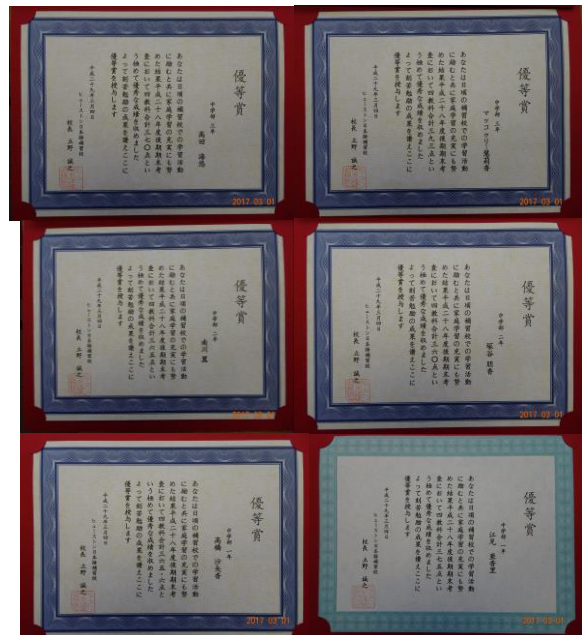 優等賞
中学部 三年
高田
あなたは日頃の補習校での学習活動
に励むと共に家庭学習の充実にも努
めた結果平成二十八年度後期期末考
査において四教科合計三七〇点とい
う極めて優秀な成績を収めました
よって刻苦勉励の成果を讃えここに
優等賞を授与します
平成二十九年三月四日
ヒューストン日本語補習校
校長 立野 誠之
2017 03 01
優等賞
中学部 三年
マッコウリー
あなたは日頃の補習校での学習活動
に励むと共に家庭学習の充実にも努
めた結果平成二十八年度後期期末考
査において四教科合計三九三点とい
う極めて優秀な成績を収めました
よって刻苦勉励の成果を讃えここに
優等賞を授与します
平成二十九年三月四日
ヒューストン日本語補習校
校長 立野 誠之
2017 03 01
優等賞
中学部 二年
南川 翼
あなたは日頃の補習校での学習活動
に励むと共に家庭学習の充実にも努
めた結果平成二十八年度後期期末考
査において四教科合計三六五点とい
う極めて優秀な成績を収めました
よって刻苦勉励の成果を讃えここに
優等賞を授与します
平成二十九年三月四日
ヒューストン日本語補習校
校長 立野 誠之
優等賞
中学部 二年
塚谷 朋香
あなたは日頃の補習校での学習活動
に励むと共に家庭学習の充実にも努
めた結果平成二十八年度後期期末考
査において四教科合計三六〇点とい
う極めて優秀な成績を収めました
よって刻苦勉励の成果を讃えここに
優等賞を授与します
平成二十九年三月四日
ヒューストン日本語補習校
校長 立野 誠之
2017 03 01
優等賞
中学部 一年
高橋 沙矢香
あなたは日頃の補習校での学習活動
に励むと共に家庭学習の充実にも努
めた結果平成二十八年度後期期末考
査において四教科合計三六五・六点と
いう極めて優秀な成績を収めました
よって刻苦勉励の成果を讃えここに
優等賞を授与します
平成二十九年三月四日
ヒューストン日本語補習校
校長 立野 誠之
2017 03 01
優等賞
中学部 一年
江見 亜香里
あなたは日頃の補習校での学習活動
に励むと共に家庭学習の充実にも努
めた結果平成二十八年度後期期末考
査において四教科合計三七五点とい
う極めて優秀な成績を収めました
よって刻苦勉励の成果を讃えここに
優等賞を授与します
平成二十九年三月四日
ヒューストン日本語補習校
校長 立野 誠之
2017 03 01